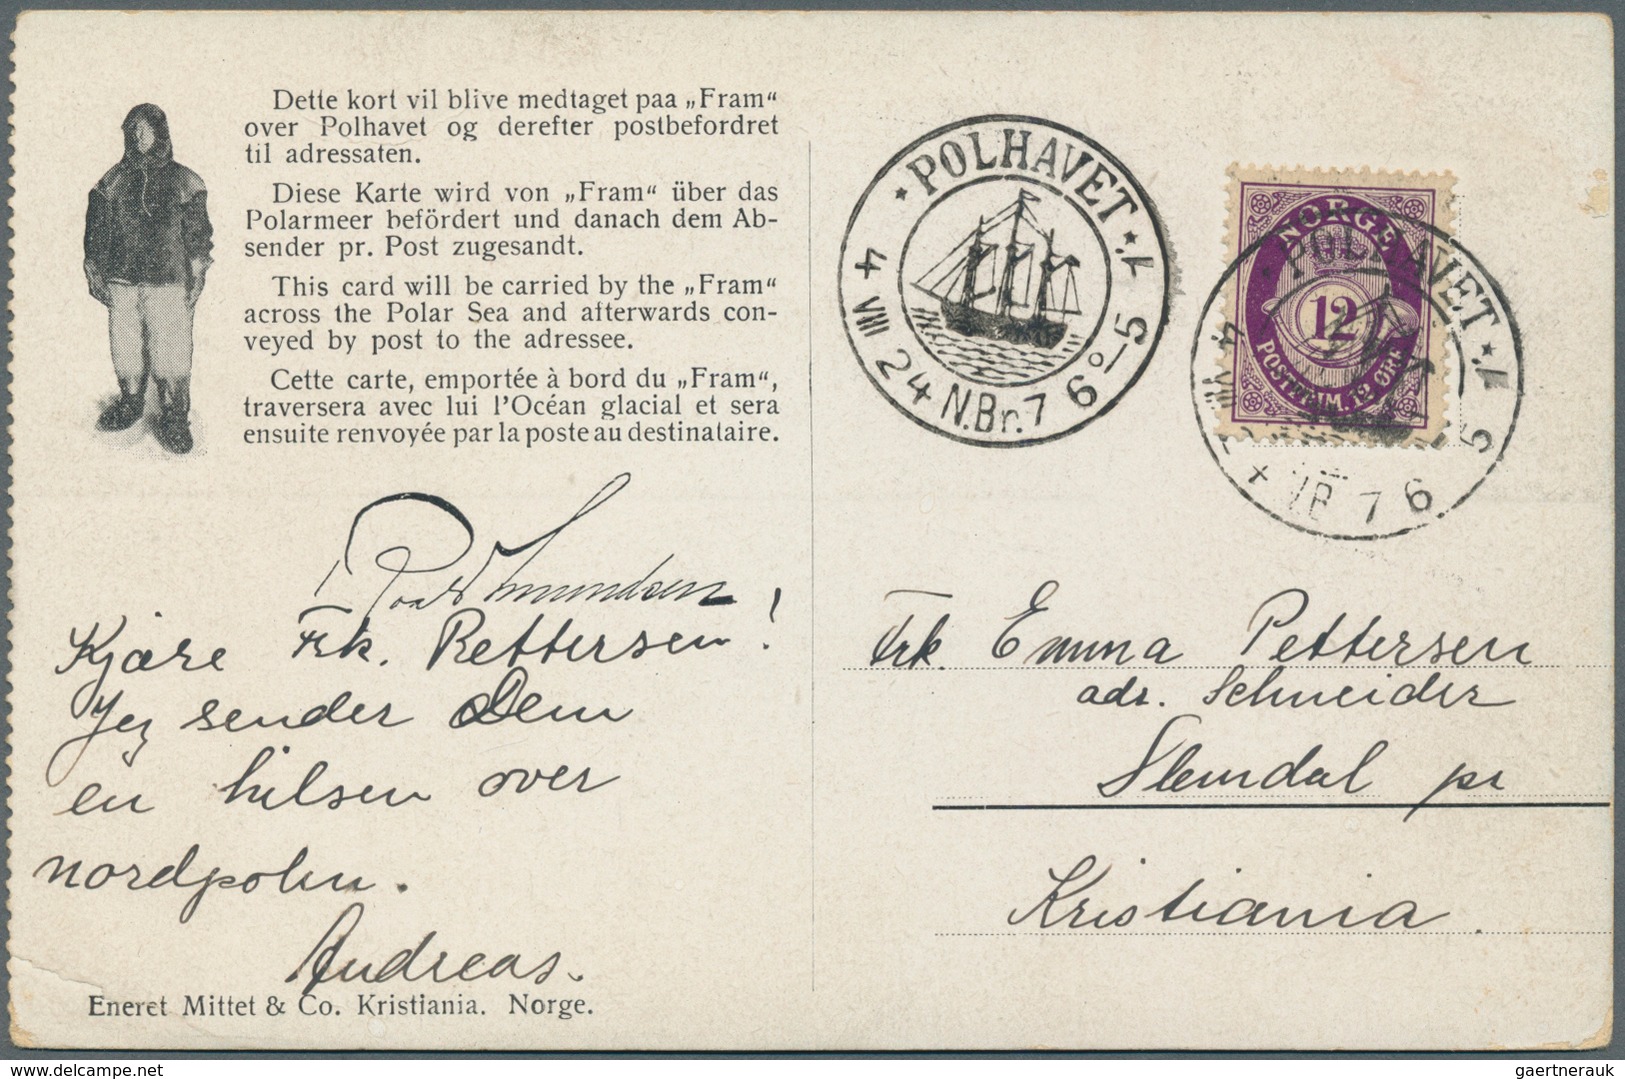 Dette kort vil blive medtaget paa „Fram“
over Polhavet og derefter postbefordret
til adressaten.
Diese Karte wird von „Fram“ über das
Polarmeer befördert und danach dem Ab-
sender pr. Post zugesandt.
This card will be carried by the „Fram“
across the Polar Sea and afterwards con-
veyed by post to the adressee.
Cette carte, emportée à bord du „Fram“,
traversera avec lui l'Océan glacial et sera
ensuite renvoyée par la poste au destinataire.
Roald Amundsen
Kjære Frk. Pettersen!
Jeg sender Dem
en hilsen over
nordpolen.
Andreas.
Eneret Mittet & Co. Kristiania. Norge.
POLHAVET
4 VIII 24 N.Br. 76°-5
NORGE
12
POSTFRIM. 12 ØRE
POLHAVET
76 5
Frk. Emma Pettersen
adr. Schneider
Slemdal pr
Kristiania.
gaertnerauk